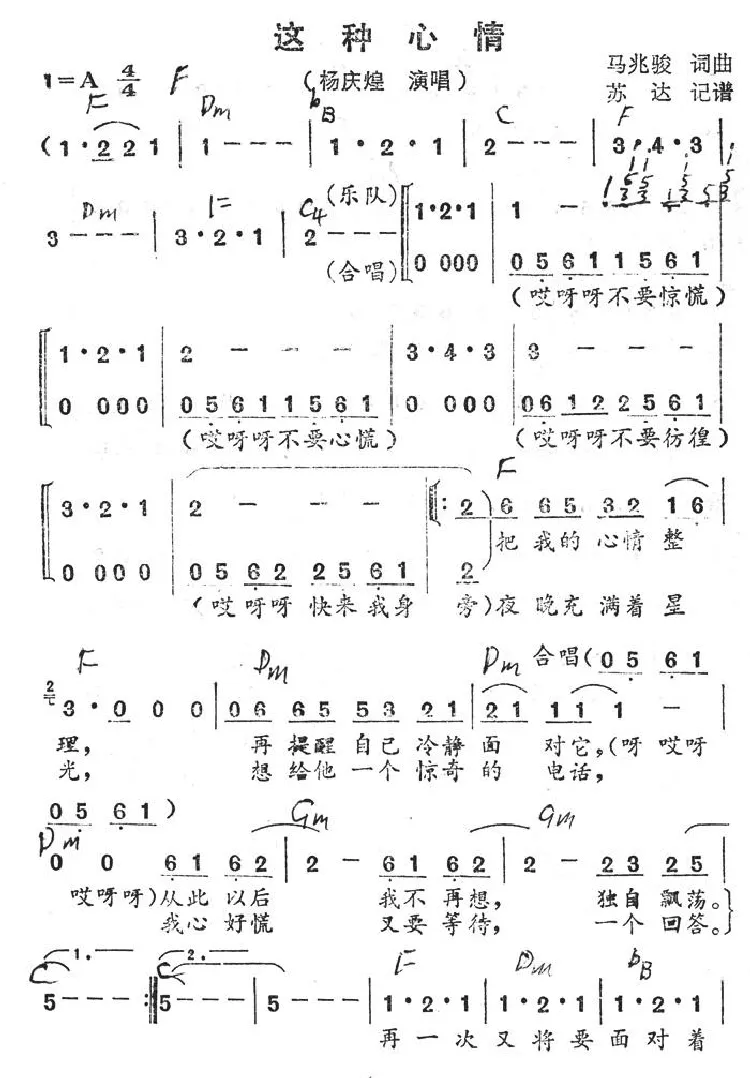 这种心情
1=A 4/4 F (杨庆煌 演唱) 马兆骏 词曲
苏达 记谱
F Dm bB C F
(1·2 2 1 | 1 - - - | 1·2·1 | 2 - - - | 3·4·3 |
Dm C4 (乐队)
3 - - - | 3·2·1 | 2 - - - 1·2·1 | 1 -
(合唱) 0 000 | 05 61 15 61
(哎呀呀不要惊慌)
1·2·1 | 2 - - - | 3·4·3 | 3 - - -
0 000 | 05 61 15 61 | 0 000 | 06 12 25 61
(哎呀呀不要心慌) (哎呀呀不要彷徨)
F
3·2·1 | 2 - - - 2 6 65 32 16
把我的心情整
0 000 | 05 62 25 61 2
(哎呀呀快来我身旁)夜晚充满着星
F Dm Dm 合唱(05 61
3·0 0 0 | 06 65 53 21 | 21 11 1 -
理, 再提醒自己冷静面对它,(呀哎呀
光, 想给他一个惊奇的电话,
05 61)
Dm Gm Gm
0 0 61 62 | 2 - 61 62 | 2 - 23 25
哎呀呀)从此以后 我不再想, 独自飘荡。
我心好慌 又要等待, 一个回答。
C 1. C 2. F Dm bB
5 - - - :| 5 - - - | 5 - - - | 1·2·1 | 1·2·1 | 1·2·1 |
再一次又将要面对着